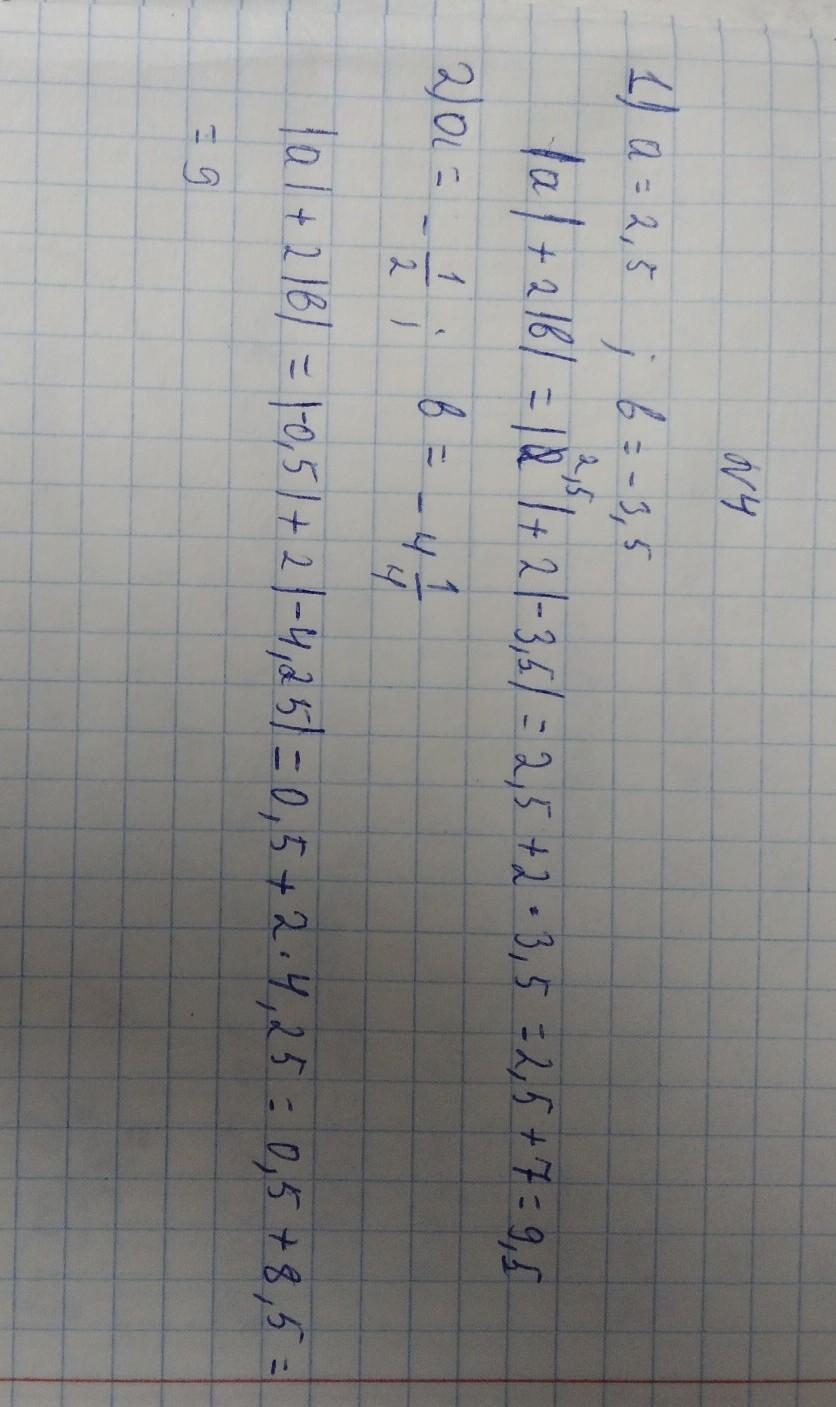 N4
1) a = 2,5 ; в = -3,5
|a| + 2|в| = |2,5| + 2|-3,5| = 2,5 + 2 · 3,5 = 2,5 + 7 = 9,5
2) a = -1/2 ; в = -4 1/4
|a| + 2|в| = |-0,5| + 2|-4,25| = 0,5 + 2 · 4,25 = 0,5 + 8,5 =
= 9